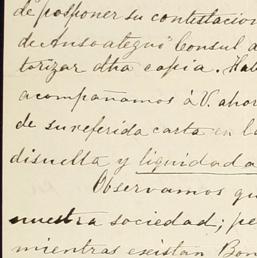 de posponer su contestacion
de Ansoategui Consul d
torizar dha copia. Hab
acompañamos á V. ahor
de su referida carta en la
disuelta y liquidada
Observamos qu
nuestra sociedad; pe
mientras existan Bon